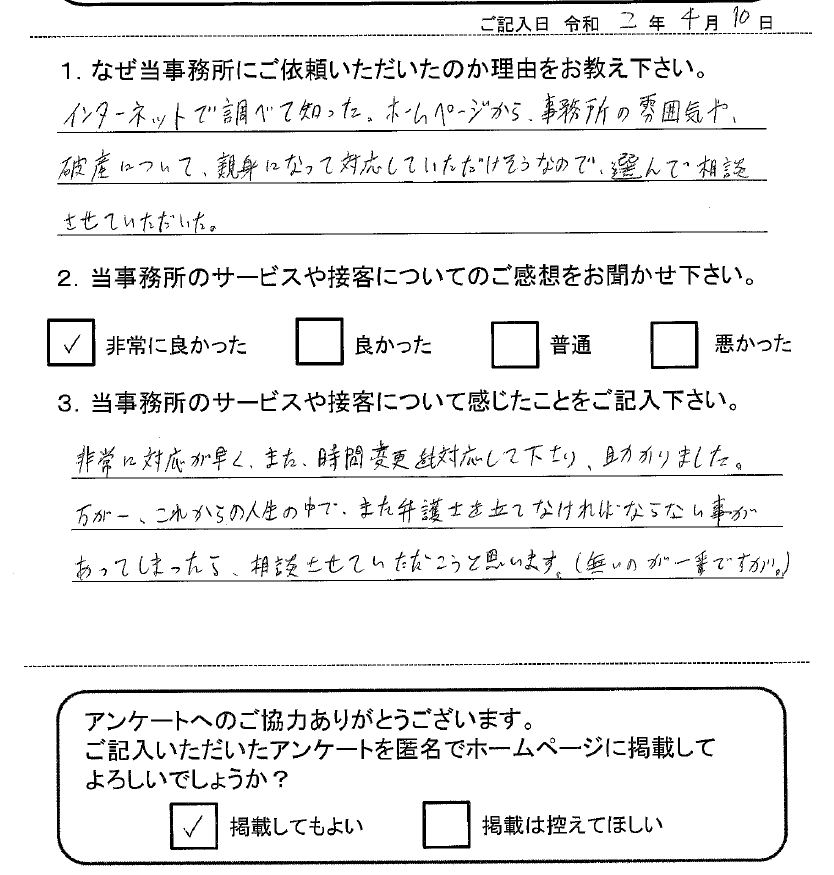 ご記入日 令和 2 年 4 月 10 日
1. なぜ当事務所にご依頼いただいたのか理由をお教え下さい。
インターネットで調べて知った。ホームページから、事務所の雰囲気や、
破産について、親身になって対応していただけそうなので、選んで相談
させていただいた。
2. 当事務所のサービスや接客についてのご感想をお聞かせ下さい。
✓ 非常に良かった 良かった 普通 悪かった
3. 当事務所のサービスや接客について感じたことをご記入下さい。
非常に対応が早く、また、時間変更 対応して下さり、助かりました。
万が一、これからの人生の中で、また弁護士を立てなければならない事が
あってしまったら、相談させていただこうと思います。(無いのが一番ですが。)
アンケートへのご協力ありがとうございます。
ご記入いただいたアンケートを匿名でホームページに掲載して
よろしいでしょうか?
✓ 掲載してもよい 掲載は控えてほしい